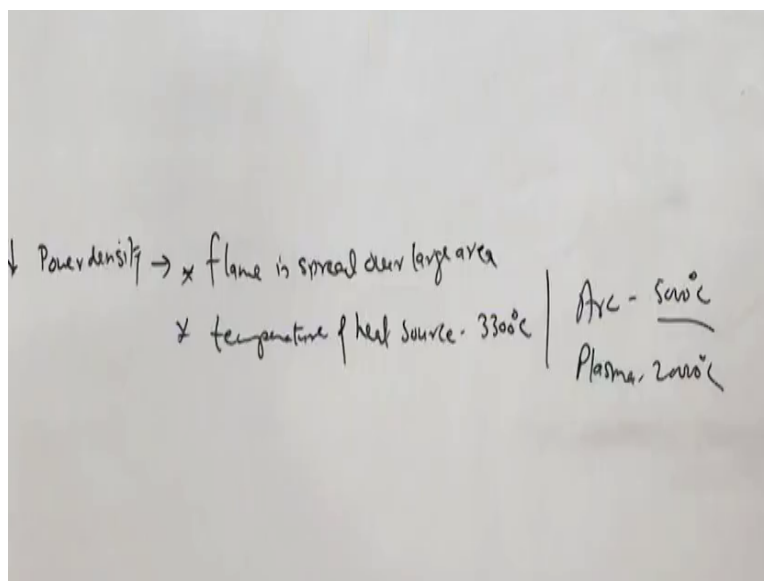 ↓ Power density → * flame is spread over large area
* temperature of heat source - 3300°C
Arc - 5000°C
Plasma, 20000°C